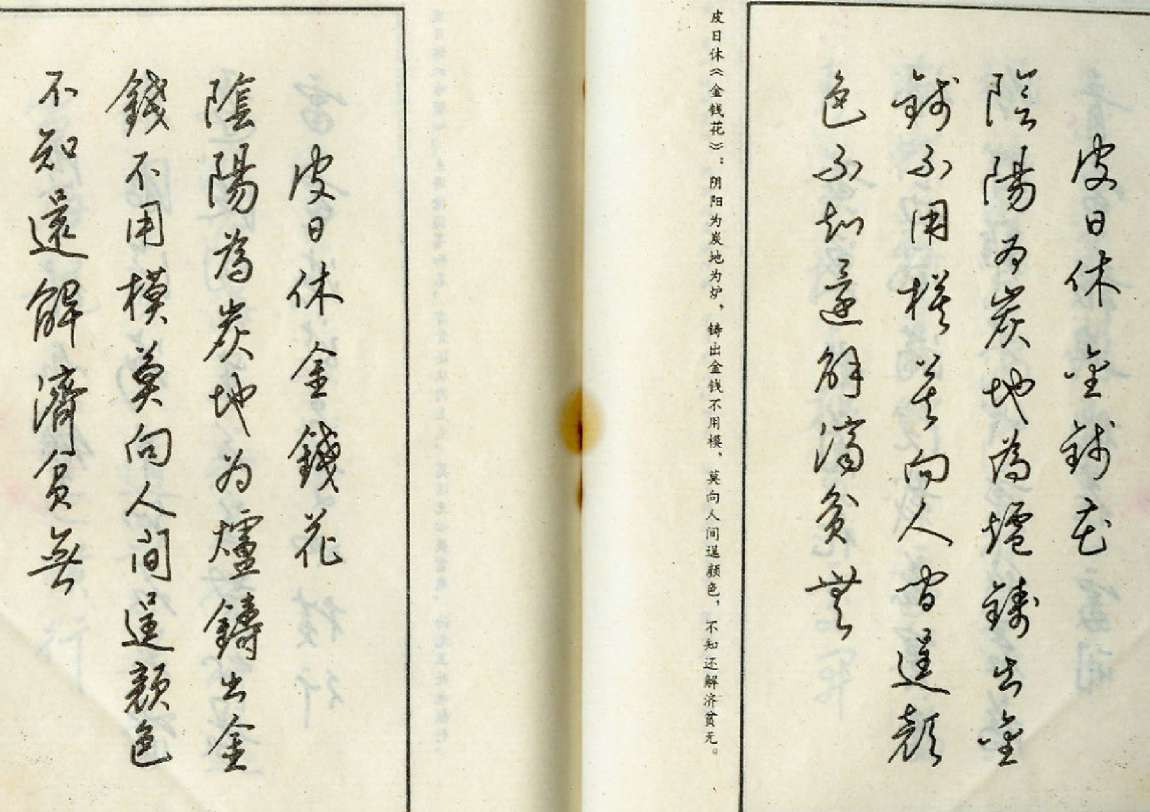 皮日休 金錢花
陰陽為炭地為爐鑄出金
錢不用模莫向人间逞顏
色不知還解濟貧無
皮日休《金钱花》：阴阳为炭地为炉，铸出金钱不用模。莫向人间逞颜色，不知还解济贫无。
皮日休金錢花
陰陽為炭地为爐鑄出金
錢不用模莫向人间逞顏色
不知還解濟貧無